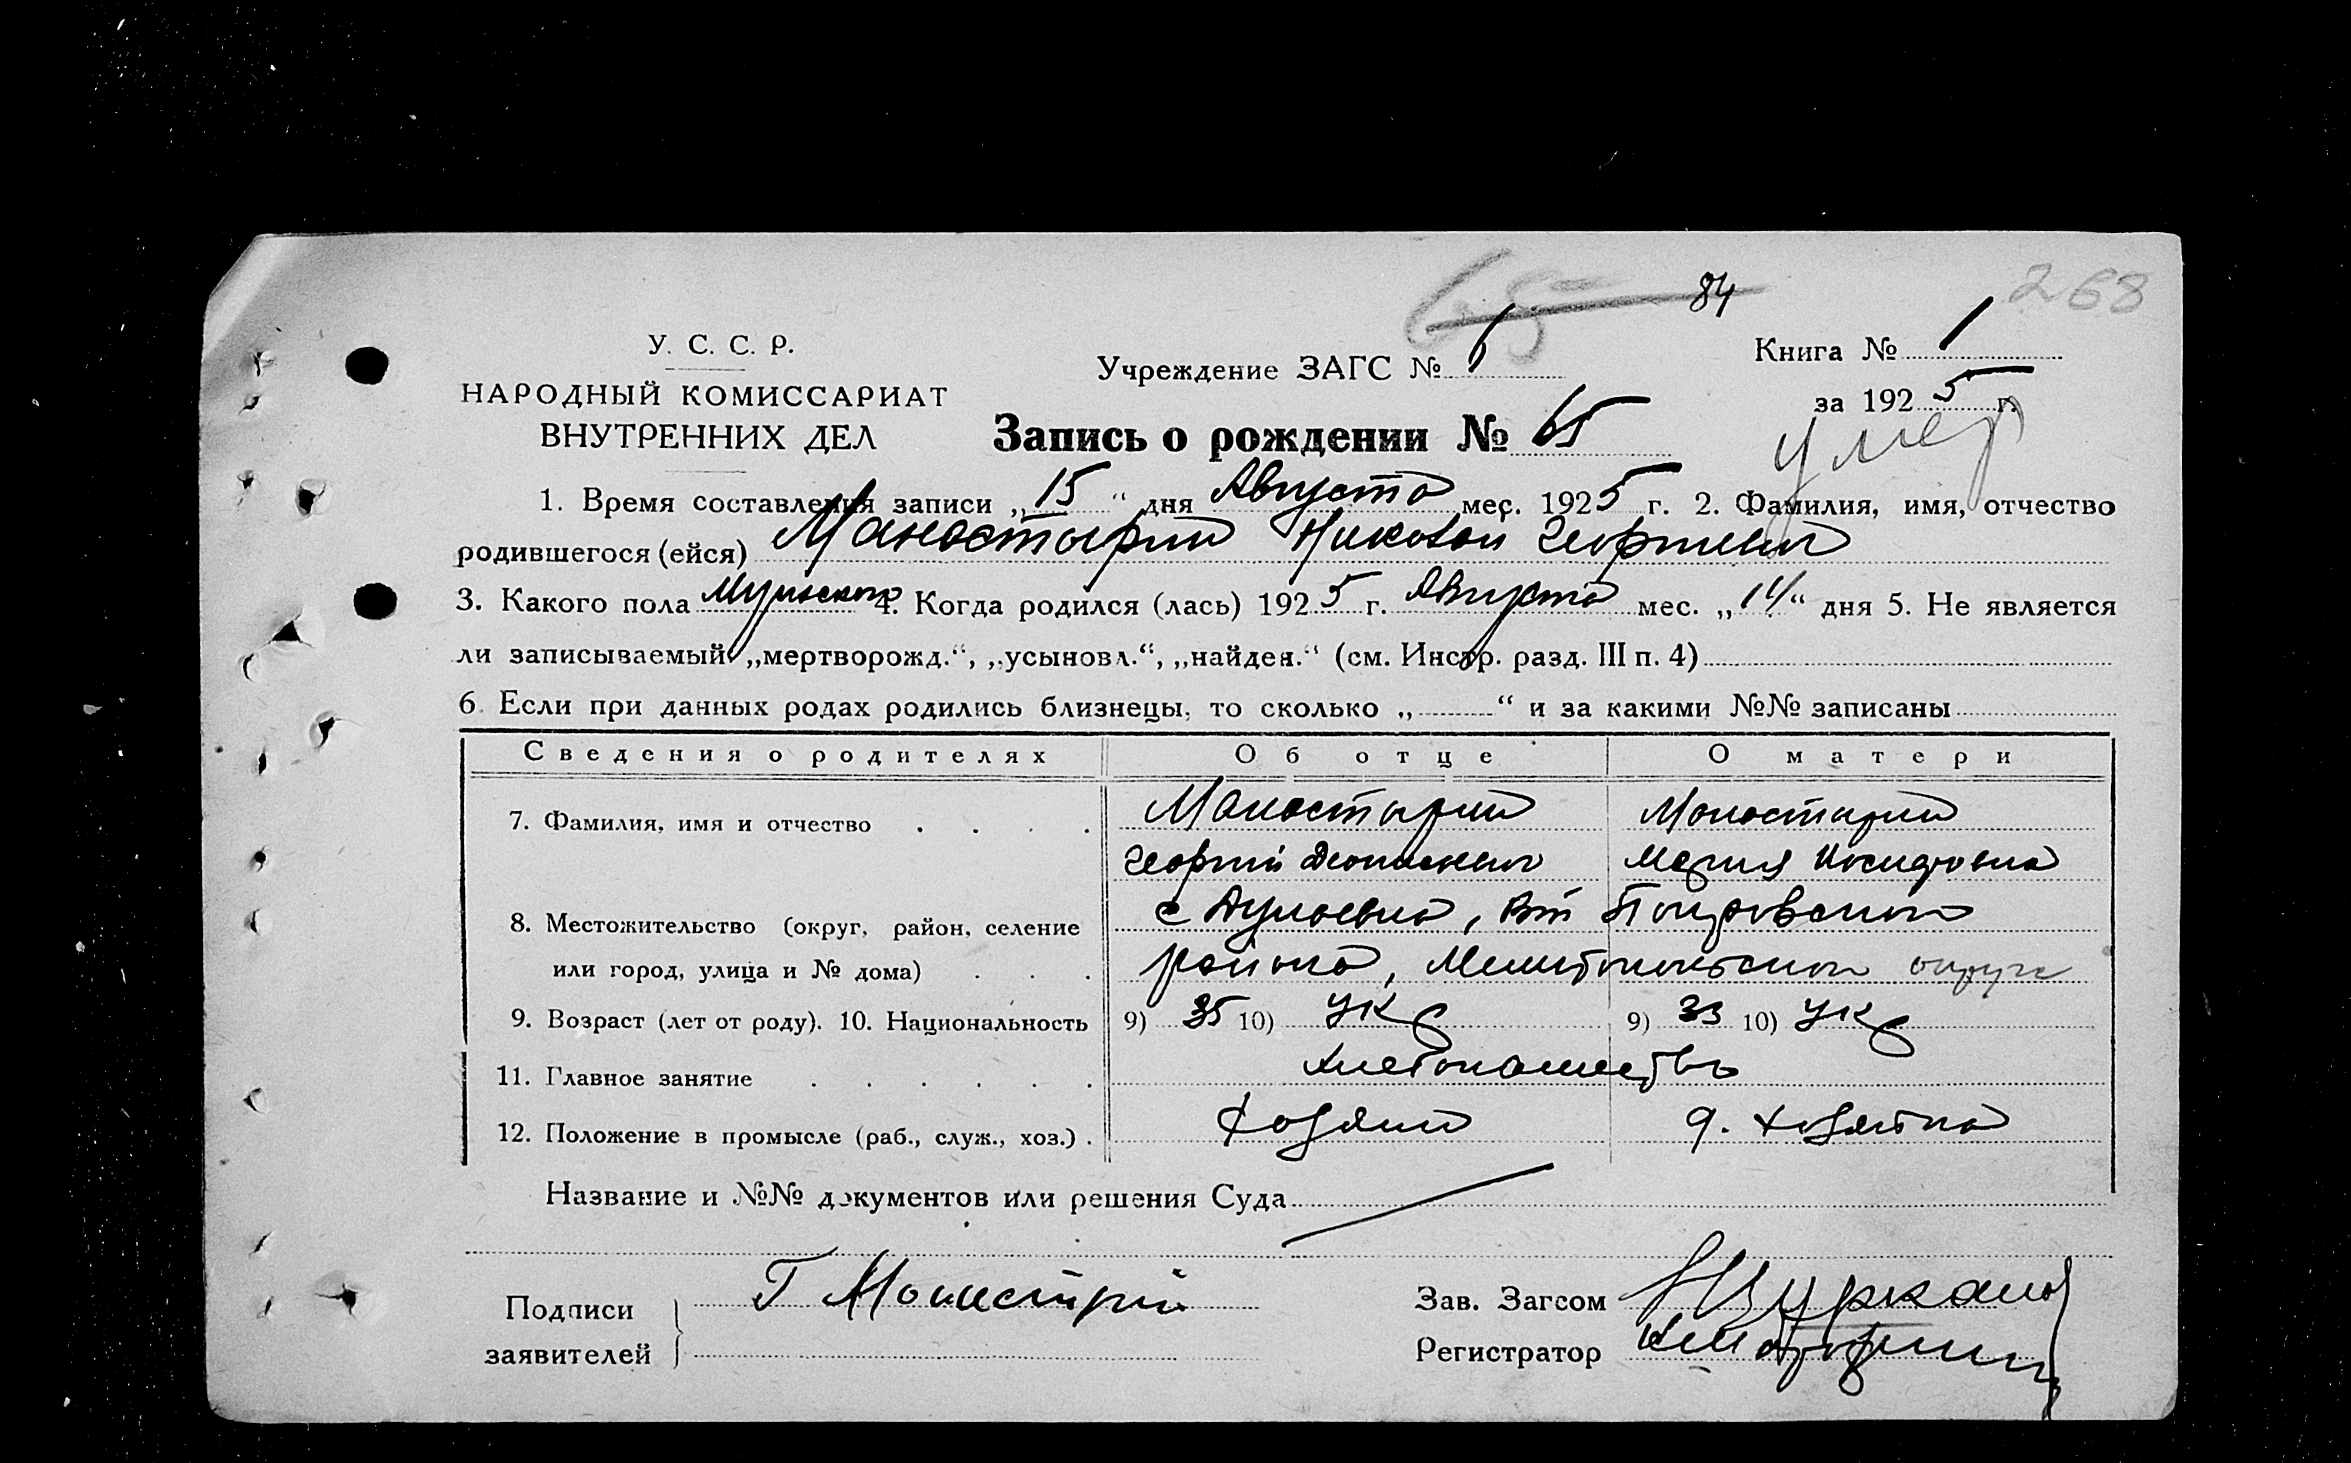 65 84 268
У. С. С. Р.
НАРОДНЫЙ КОМИССАРИАТ
ВНУТРЕННИХ ДЕЛ
Учреждение ЗАГС №
Книга № 1
за 1925 г.
Запись о рождении № 65
умер
1. Время составления записи „15“ дня Августа мес. 1925 г. 2. Фамилия, имя, отчество
родившегося (ейся) Манастырий Николай Георгиевич
3. Какого пола Мужского 4. Когда родился (лась) 1925 г. Августа мес. „14“ дня 5. Не является
ли записываемый „мертворожд.“, „усыновл.“, „найден.“ (см. Инстр. разд. III п. 4)
6. Если при данных родах родились близнецы, то сколько „ “ и за какими №№ записаны
Сведения о родителях Об отце О матери
7. Фамилия, имя и отчество Монастырий Монастырий
Георгий Мария
8. Местожительство (округ, район, селение с
или город, улица и № дома) района, Мелитопольского округа
9. Возраст (лет от роду). 10. Национальность 9) 35 10) Укр 9) 33 10) Укр
11. Главное занятие Хлебопашество
12. Положение в промысле (раб., служ., хоз.) Хозяин д. хозяйка
Название и №№ документов или решения Суда
Подписи заявителей Г
Зав. Загсом
Регистратор